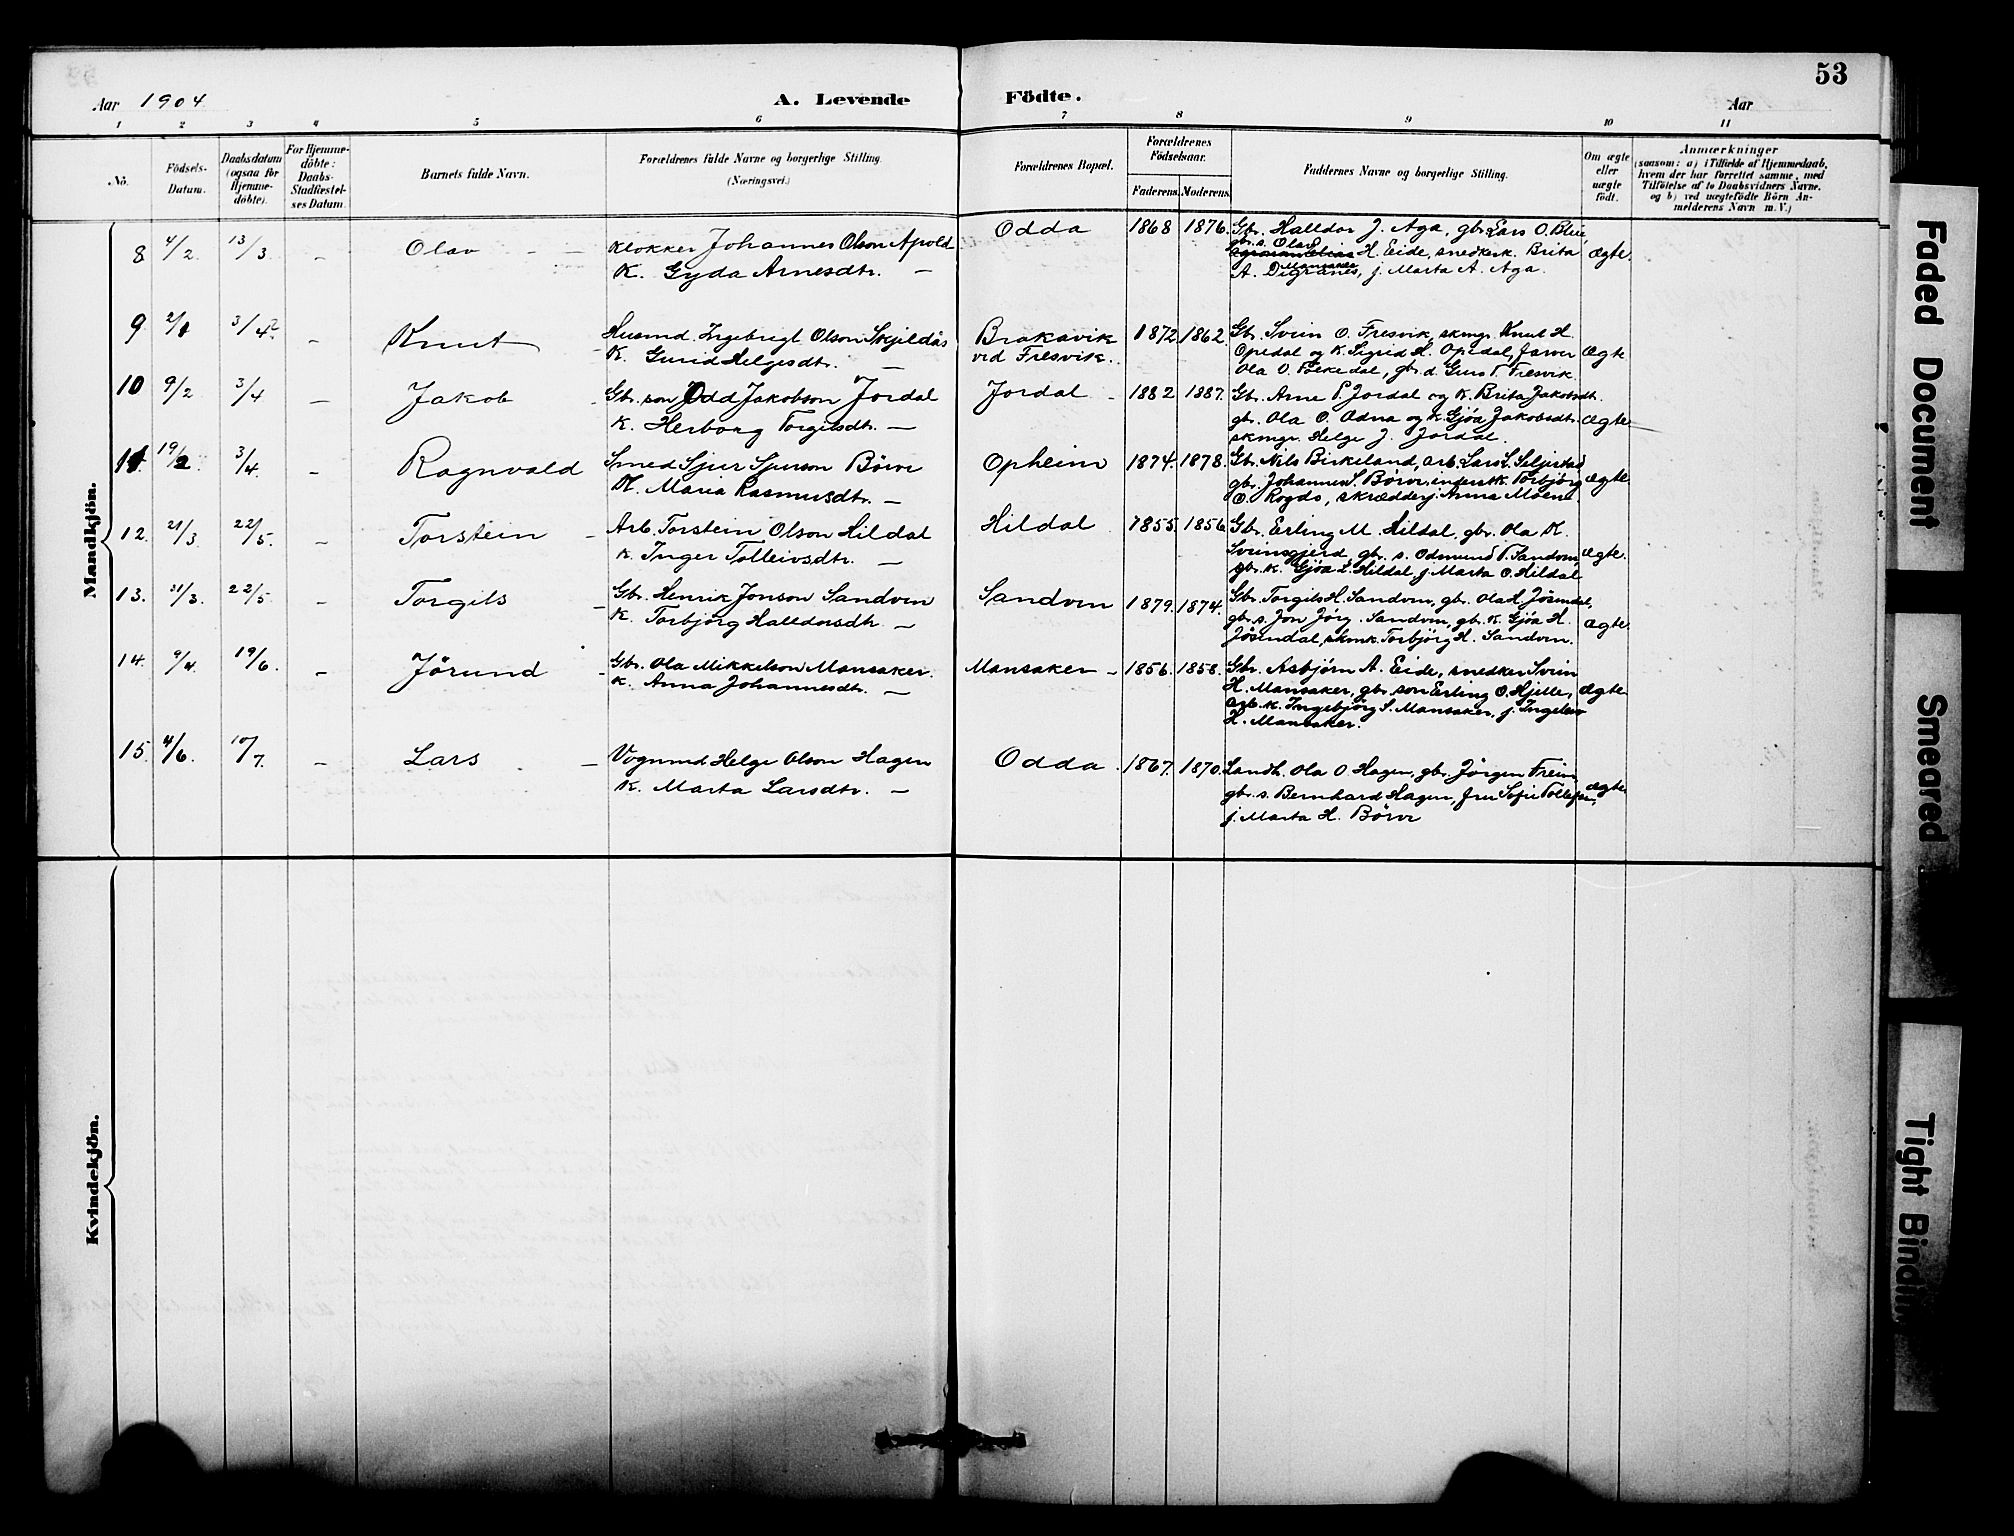 53
Aar 1904
A. Levende
Födte.
Aar
1 2 3 4 5 6 7 8 9 10 11
No.
Födsels-Datum.
Daabsdatum (ogsaa for Hjemme-döbte).
For Hjemme-döbte: Daabs-Stadfæstel-ses Datum.
Barnets fulde Navn.
Forældrenes fulde Navne og borgerlige Stilling.
(Næringsvei.)
Forældrenes Bopæl.
Forældrenes Födselsaar.
Faderens. Moderens.
Faddernes Navne og borgerlige Stilling.
Om ægte eller uægte födt.
Anmærkninger
(saasom: a) i Tilfælde af Hjemmedaab, hvem der har forrettet samme, med Tilföielse af to Daabsvidners Navne. og b) ved uægtefödte Börn An-melderens Navn m. V.)
Mandkjön.
8 4/2. 13/3 - Olav - Klokker Johannes Olson Apold
K. Gyda Arnesdtr. —
Odda 1868 1876. Gbr. Halldor J. Aga, gbr. Lars O. Bleie
gbr. s. Olav
H. Eide, snedkerk. Brita
Mansaker
A. Digranes, j. Marta A. Aga.
Ægte.
9 3/4 - Knut Husmd. Ingebrigt Olson Skjeldås
K. Gurid Helgesdtr. —
Brakavik
ved Fresvik.
1872 1862. Gbr. Svein O. Fresvik, skmgr. Knut H.
Opedal og K. Sigrid H. Opedal, farver
Ola O. Folkedal, gbr. d. Guro T. Fresvik.
Ægte
10 9/2 3/4 — Jakob Gbr. søn Odd Jakobson Jordal
K. Herborg Torgilsdtr. —
Jordal 1882 1887. Gbr. Arne P. Jordal og K. Brita Jakobsdt.
gbr. Ola O. Odna og K. Gjøa Jakobsdtr.
skmgr. Helge J. Jordal.
Ægte
11. 19/2. 3/4. - Ragnvald Smed Sjur Sjurson Börve
K. Maria Rasmusdtr. —
Opheim 1874. 1878. Gbr. Nils Birkeland, arb. Lars L. Seljestad
gbr. Johannes S. Börve, inderstk. Torbjörg
O. Rogde, skrædderj. Anna Moene
ægte
12. 21/3 22/5. - Torstein Arb. Torstein Olson Hildal
K. Inger Tolleivsdtr. —
Hildal 1855 1856 Gbr. Erling M. Hildal, gbr. Ola K.
Sveinsgjerd, gbr. s. Odmund T. Sandven,
gbr. K. Gjøa L. Hildal, j. Marta O. Hildal
ægte.
13. 31/3. 22/5. - Torgils Gbr. Henrik Jonson Sandven
K. Torbjørg Halldorsdtr. —
Sandven 1879. 1874. Gbr. Torgils H. Sandven, gbr. Ola H. Jösendal,
gbr. s. Jon Jörg. Sandven, gbr. K. Gjøa H.
Jösendal, skmk. Torbjørg H. Sandven.
ægte.
14. 9/4. 19/6. - Jörund Gbr. Ola Mikkelson Mansaker.
K. Anna Johannesdtr. —
Mansaker - 1856. 1858. Gbr. Asbjørn A. Eide, snedker Svein
H. Mansaker, gbr. søn Erling O. Hjelle,
arb. k. Ingebjörg S. Mansaker, j. Ingeleiv
H. Mansaker.
ægte
15. 4/6. 10/7. - Lars Vognmd Helge Olson Hagen
K. Marta Larsdtr. —
Odda 1867. 1870. Landh. Ola O. Hagen, gbr. Jörgen Freim,
gbr. s. Bernhard Hagen, fru Sofie Tollefsen,
j. Marta H. Börve
ægte
Kvindekjön.
Faded Document
Smeared
Tight Bindin